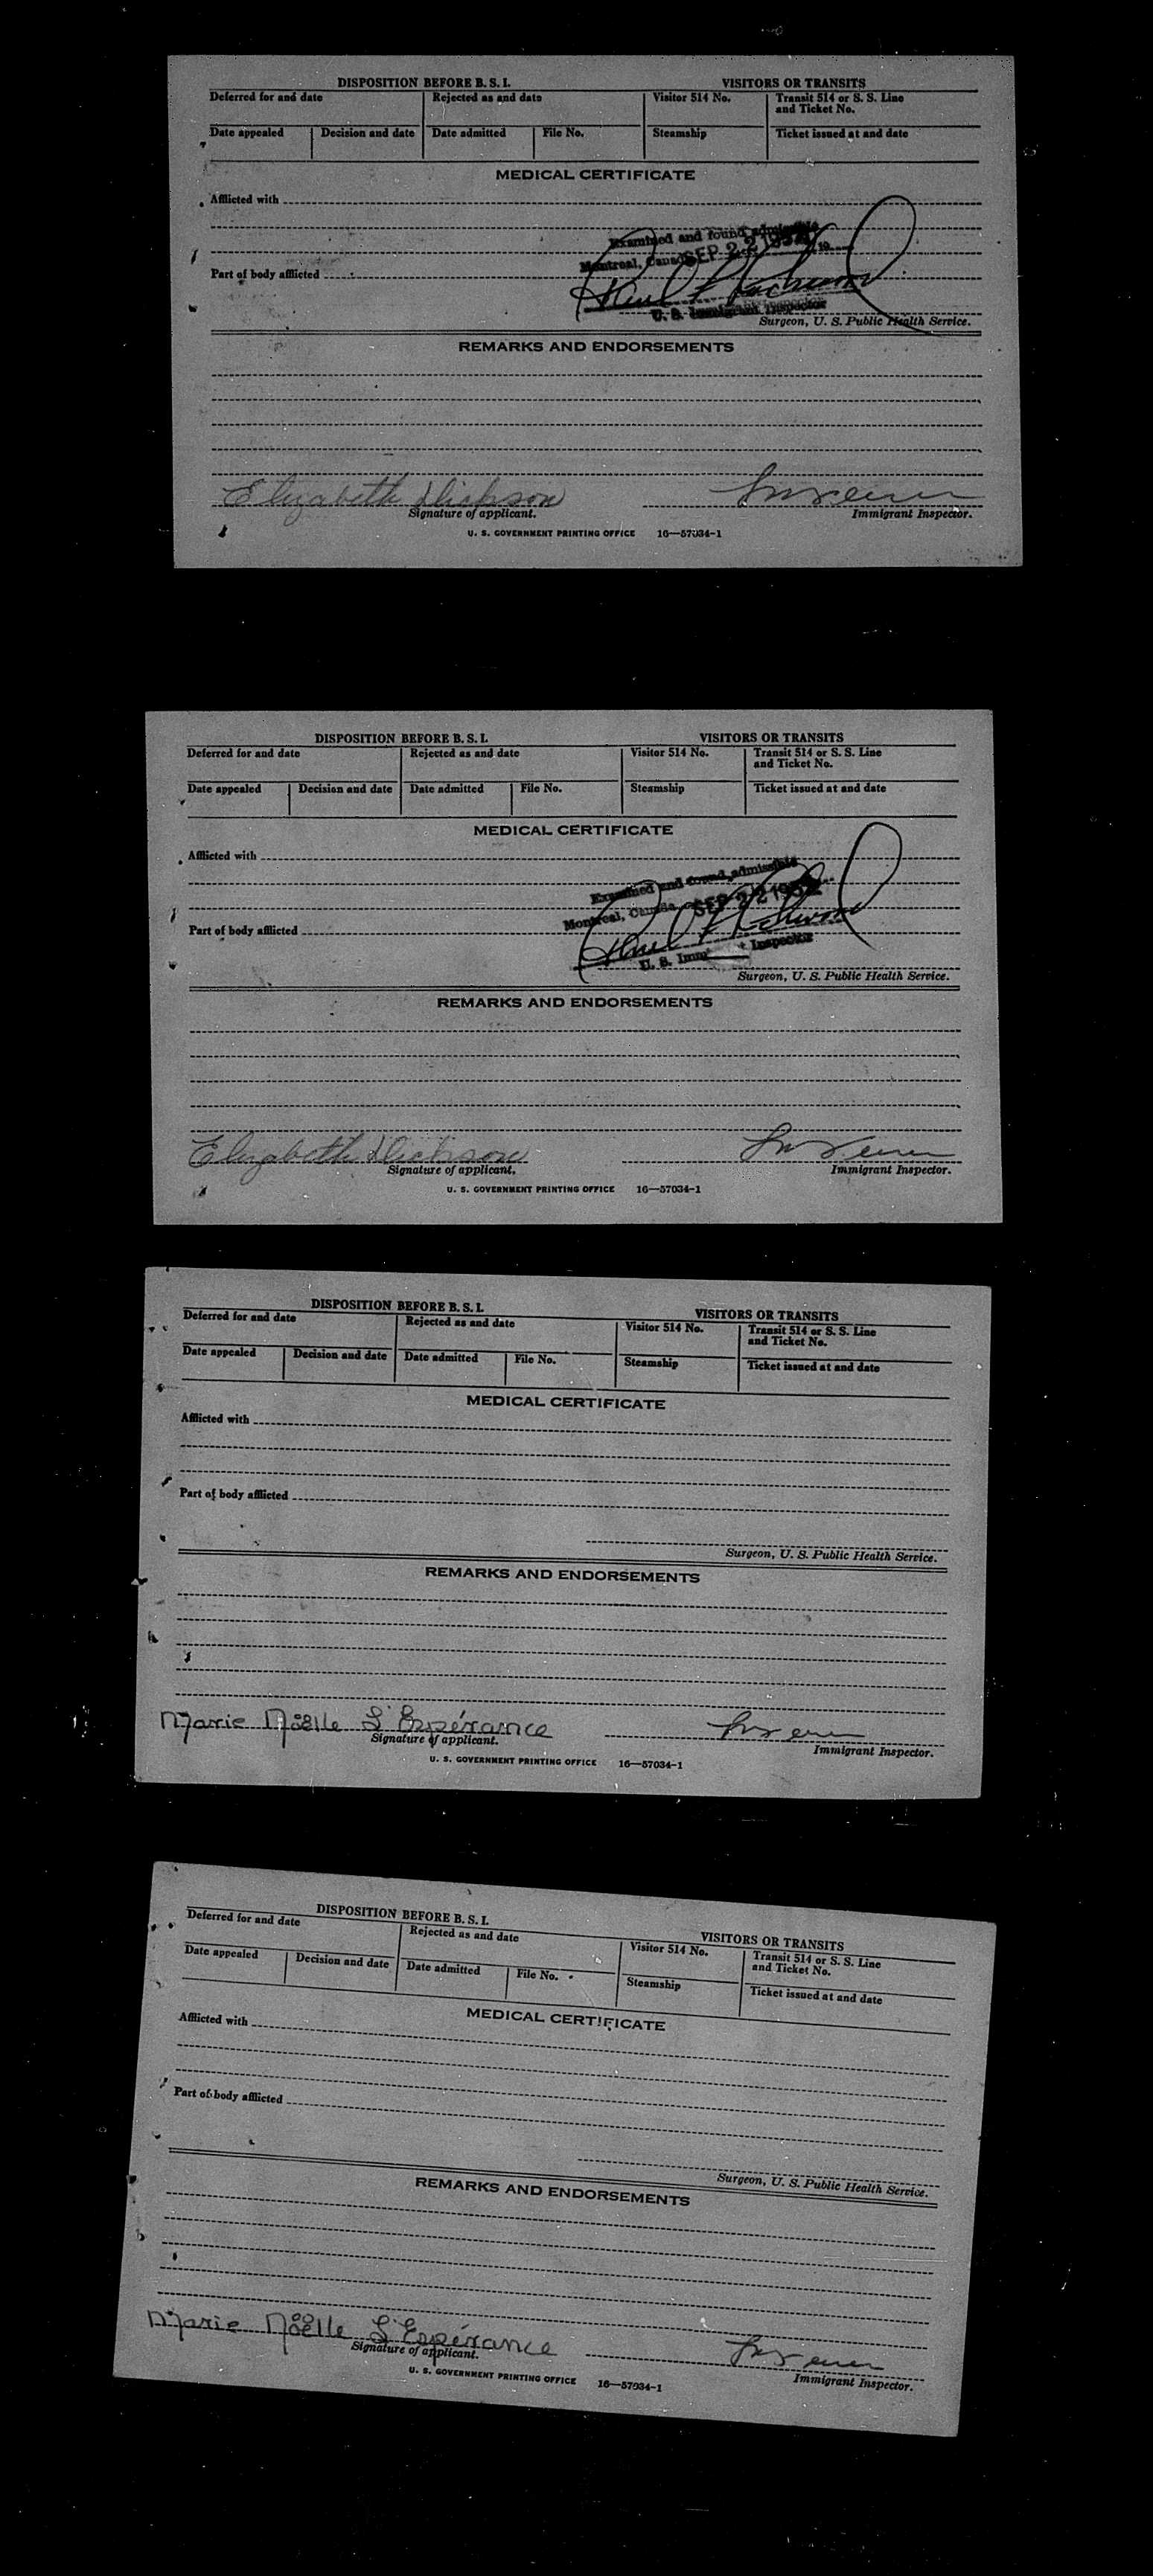 DISPOSITION BEFORE B. S. I. VISITORS OR TRANSITS
Deferred for and date Rejected as and date Visitor 514 No. Transit 514 or S. S. Line and Ticket No.
Date appealed Decision and date Date admitted File No. Steamship Ticket issued at and date
MEDICAL CERTIFICATE
Afflicted with
Examined and found admissible
Montreal, Canada SEP 22 19
Part of body afflicted
U. S. Immigrant Inspector
Surgeon, U. S. Public Health Service.
REMARKS AND ENDORSEMENTS
Elizabeth Dickson
Signature of applicant. Immigrant Inspector.
U. S. GOVERNMENT PRINTING OFFICE 16—57034-1
DISPOSITION BEFORE B. S. I. VISITORS OR TRANSITS
Deferred for and date Rejected as and date Visitor 514 No. Transit 514 or S. S. Line and Ticket No.
Date appealed Decision and date Date admitted File No. Steamship Ticket issued at and date
MEDICAL CERTIFICATE
Afflicted with
Examined and found admissible
Montreal, Canada SEP 22 195
Part of body afflicted
U. S. Inspector
Surgeon, U. S. Public Health Service.
REMARKS AND ENDORSEMENTS
Elizabeth Dickson
Signature of applicant. Immigrant Inspector.
U. S. GOVERNMENT PRINTING OFFICE 16—57034-1
DISPOSITION BEFORE B. S. I. VISITORS OR TRANSITS
Deferred for and date Rejected as and date Visitor 514 No. Transit 514 or S. S. Line and Ticket No.
Date appealed Decision and date Date admitted File No. Steamship Ticket issued at and date
MEDICAL CERTIFICATE
Afflicted with
Part of body afflicted
Surgeon, U. S. Public Health Service.
REMARKS AND ENDORSEMENTS
Marie Noëlle L'Espérance
Signature of applicant. Immigrant Inspector.
U. S. GOVERNMENT PRINTING OFFICE 16—57034-1
DISPOSITION BEFORE B. S. I. VISITORS OR TRANSITS
Deferred for and date Rejected as and date Visitor 514 No. Transit 514 or S. S. Line and Ticket No.
Date appealed Decision and date Date admitted File No. Steamship Ticket issued at and date
MEDICAL CERTIFICATE
Afflicted with
Part of body afflicted
Surgeon, U. S. Public Health Service.
REMARKS AND ENDORSEMENTS
Marie Noëlle L'Espérance
Signature of applicant. Immigrant Inspector.
U. S. GOVERNMENT PRINTING OFFICE 16—57034-1